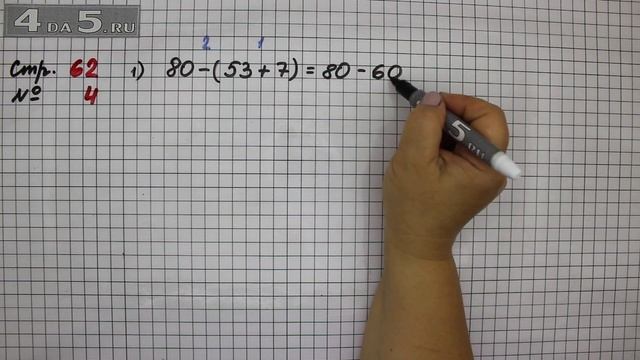 4DA5.RU
2 1
Стр. 62 1) 80 - (53 + 7) = 80 - 60
№ 4
5